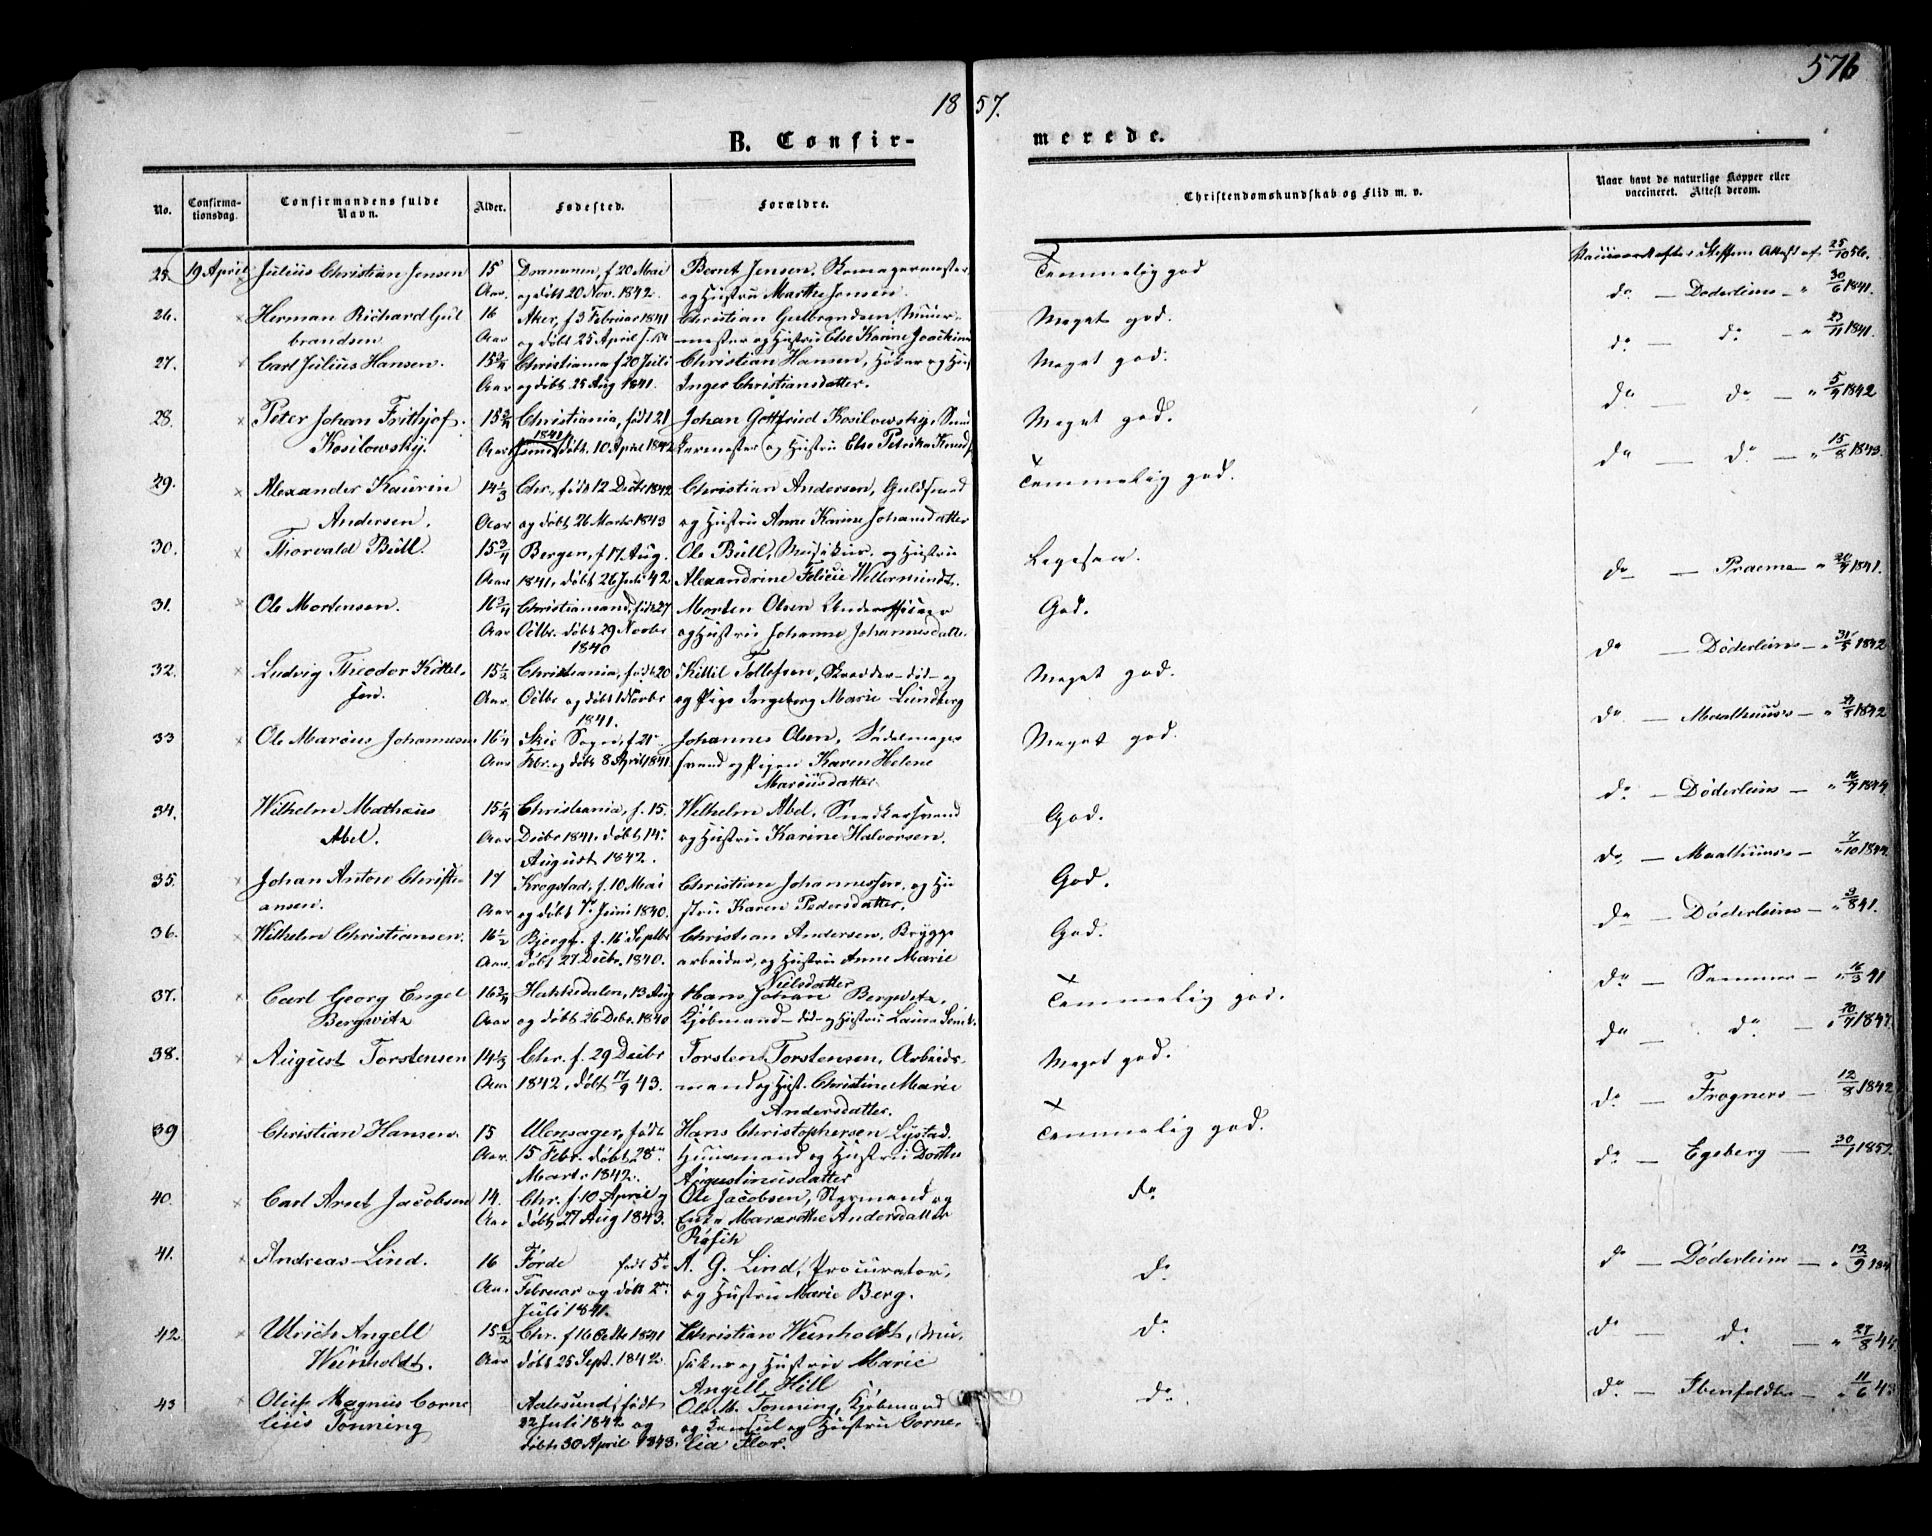 576
1857.
B. Confirmerede.
No. Confirmationsdag. Confirmandens fulde Navn. Alder. Fødested. Forældre. Christendomskundskab og Flid m. v. Naar havt de naturlige Kopper eller vaccineret. Attest derom.
25. 19 April Julius Christian Jensen 15 Drammen, f. 20 Mai Bernt Jensen, Skomagermester Temmelig god Attest af 25/10 56.
Aar. og døbt 20 Nov. 1842. og Hustru Marthe Jensen.
26. Herman Richard Gul 16 Aker, f. 3 Februar 1841 Christian Gulbrandsen, Muur- Meget god. do — Døderleins — " 30/6 1841.
brandsen Aar og døbt 25 April mester og Hustru Else Karine
27. Carl Julius Hansen. 15 3/4 Christiania f 20 Juli Christian Hansen, Høker og Meget god. do — do — " 23/11 1841.
Aar og døbt 25 Aug 1841. Inger Christiansdatter.
28. Peter Johan Frithjof 15 3/4 Christiania, født 21 Johan Gottfried Kosilowsky, Meget god. do — do " 5/9 1842
Kosilowsky. Aar 1841 døbt 10 April 1842 og Hustru Else Petrika
29. Alexander Kaurin 14 1/3 Chr., født 12 Decbr 1842 Christian Andersen, Guldsmed Temmelig god. do — do — " 15/8 1843.
Andersen. Aar og døbt 26 Marts 1843 og Hustru Anne Karine Johansdatter
30. Thorvald Bull. 15 3/4 Bergen, f. 17. Aug. Ole Bull, Musikus, og Hustru Ligesaa. do — — " 1841.
Aar. 1841, døbt 26 Juli 42 Alexandrine Felicie
31. Ole Mortensen. 16 3/4 Christiansand, født 27 Morten Olsen Underofficeer God.
Aar Octbr. døbt 29 Novbr og Hustru Johanne Johannesdatter do — Døderleins — " 31/5 1842
1840
32. Ludvig Theodor Kittel- 15 1/2 Christiania, født 20 Kittil Tollefsen, Skrædder — død — og Meget god.
sen. Aar. Octbr og døbt 1 Novbr og Pige Ingeborg Marie Lundberg do — Maalthuus — " 1842
1841.
33 Ole Marcus Johannesen 16 1/4 Skie Sogn, f. 21 Johannes Olsen, Sadelmager Meget god.
Aar Febr. og døbt 8 April 1841. svend og Pigen Karen Helene
Marcusdatter do — Døderleins — " 1844.
34. Wilhelm Mathæus 15 1/4 Christiania, f. 15. Wilhelm Abel, Snedkersvend God.
Abel. Aar Decbr 1841, døbt 14 og Hustru Karine Halvorsen. do — Maalthuus — " 7/10 1844.
August 1842.
35. Johan Anton Christi- 17 Krogstad, f. 10 Mai Christian Johannessen, og Hu God.
ansen. Aar og døbt 7 Juni 1840. stru Karen Pedersdatter. do — Døderleins — " 3/8 41.
36. Wilhelm Christiansen. 16 1/2 f. 16 Septbr Christian Andersen, Brygge God.
Aar. døbt 27 Decbr. 1840. arbeider, og Hustru Anne Marie do — — " 41
Nielsdatter
37. Carl Georg Engel 16 3/4 Hakkedalen, 13 Aug Hans Johan Bergwitz, Temmelig god.
Bergwitz Aar og døbt 26 Decbr. 1840 Kjøbmand — død — og Hustru Laura do do — " 1847.
38. August Torstensen 14 1/3 Chr. f. 29 Decbr Torsten Torstensen, Arbeids- Meget god.
Aar 1842, døbt 17/9 43. mand og Hust. Christine Marie do — Frogners — 12/8 1842
Andersdatter.
39 Christian Hansen. 15 Ulensager, født Hans Christophersen Lystad. Temmelig god.
Aar. 15 Febr. døbt 28 Huusmand og Hustru Dorthe do — Egeberg — 1857.
Marts 1842. Augustinusdatter
40. Carl Jacobsen 14. Chr. f. 10 April og Ole Jacobsen, Styrmand og do
Aar døbt 27 Aug 1843. Enke Andersdatter
41. Andreas Lind. 16 Førde født 5 A. G. Lind, Procurator, do. do — Døderleins — " 12/9
Aar. Februar og døbt 2 og Hustru Marie Berg.
Juli 1841.
42. Ulrich Angell 15 1/2 Chr. f 16 Octbr 1841 Christian Weinholdt, Mu- do. do — do — " 27/8 44
Weinholdt. Aar døbt 25 Sept. 1842. sikus og Hustru Marie
Angell Hill
43 Oluf Magnus Corne Aalesund, født Ole M. Tonning, Kjøbmand do. do — — " 11/6 43
lius Tonning 22 Juli 1842 og og Consul og Hustru Corne-
døbt 30 April 1843. lia Flor.